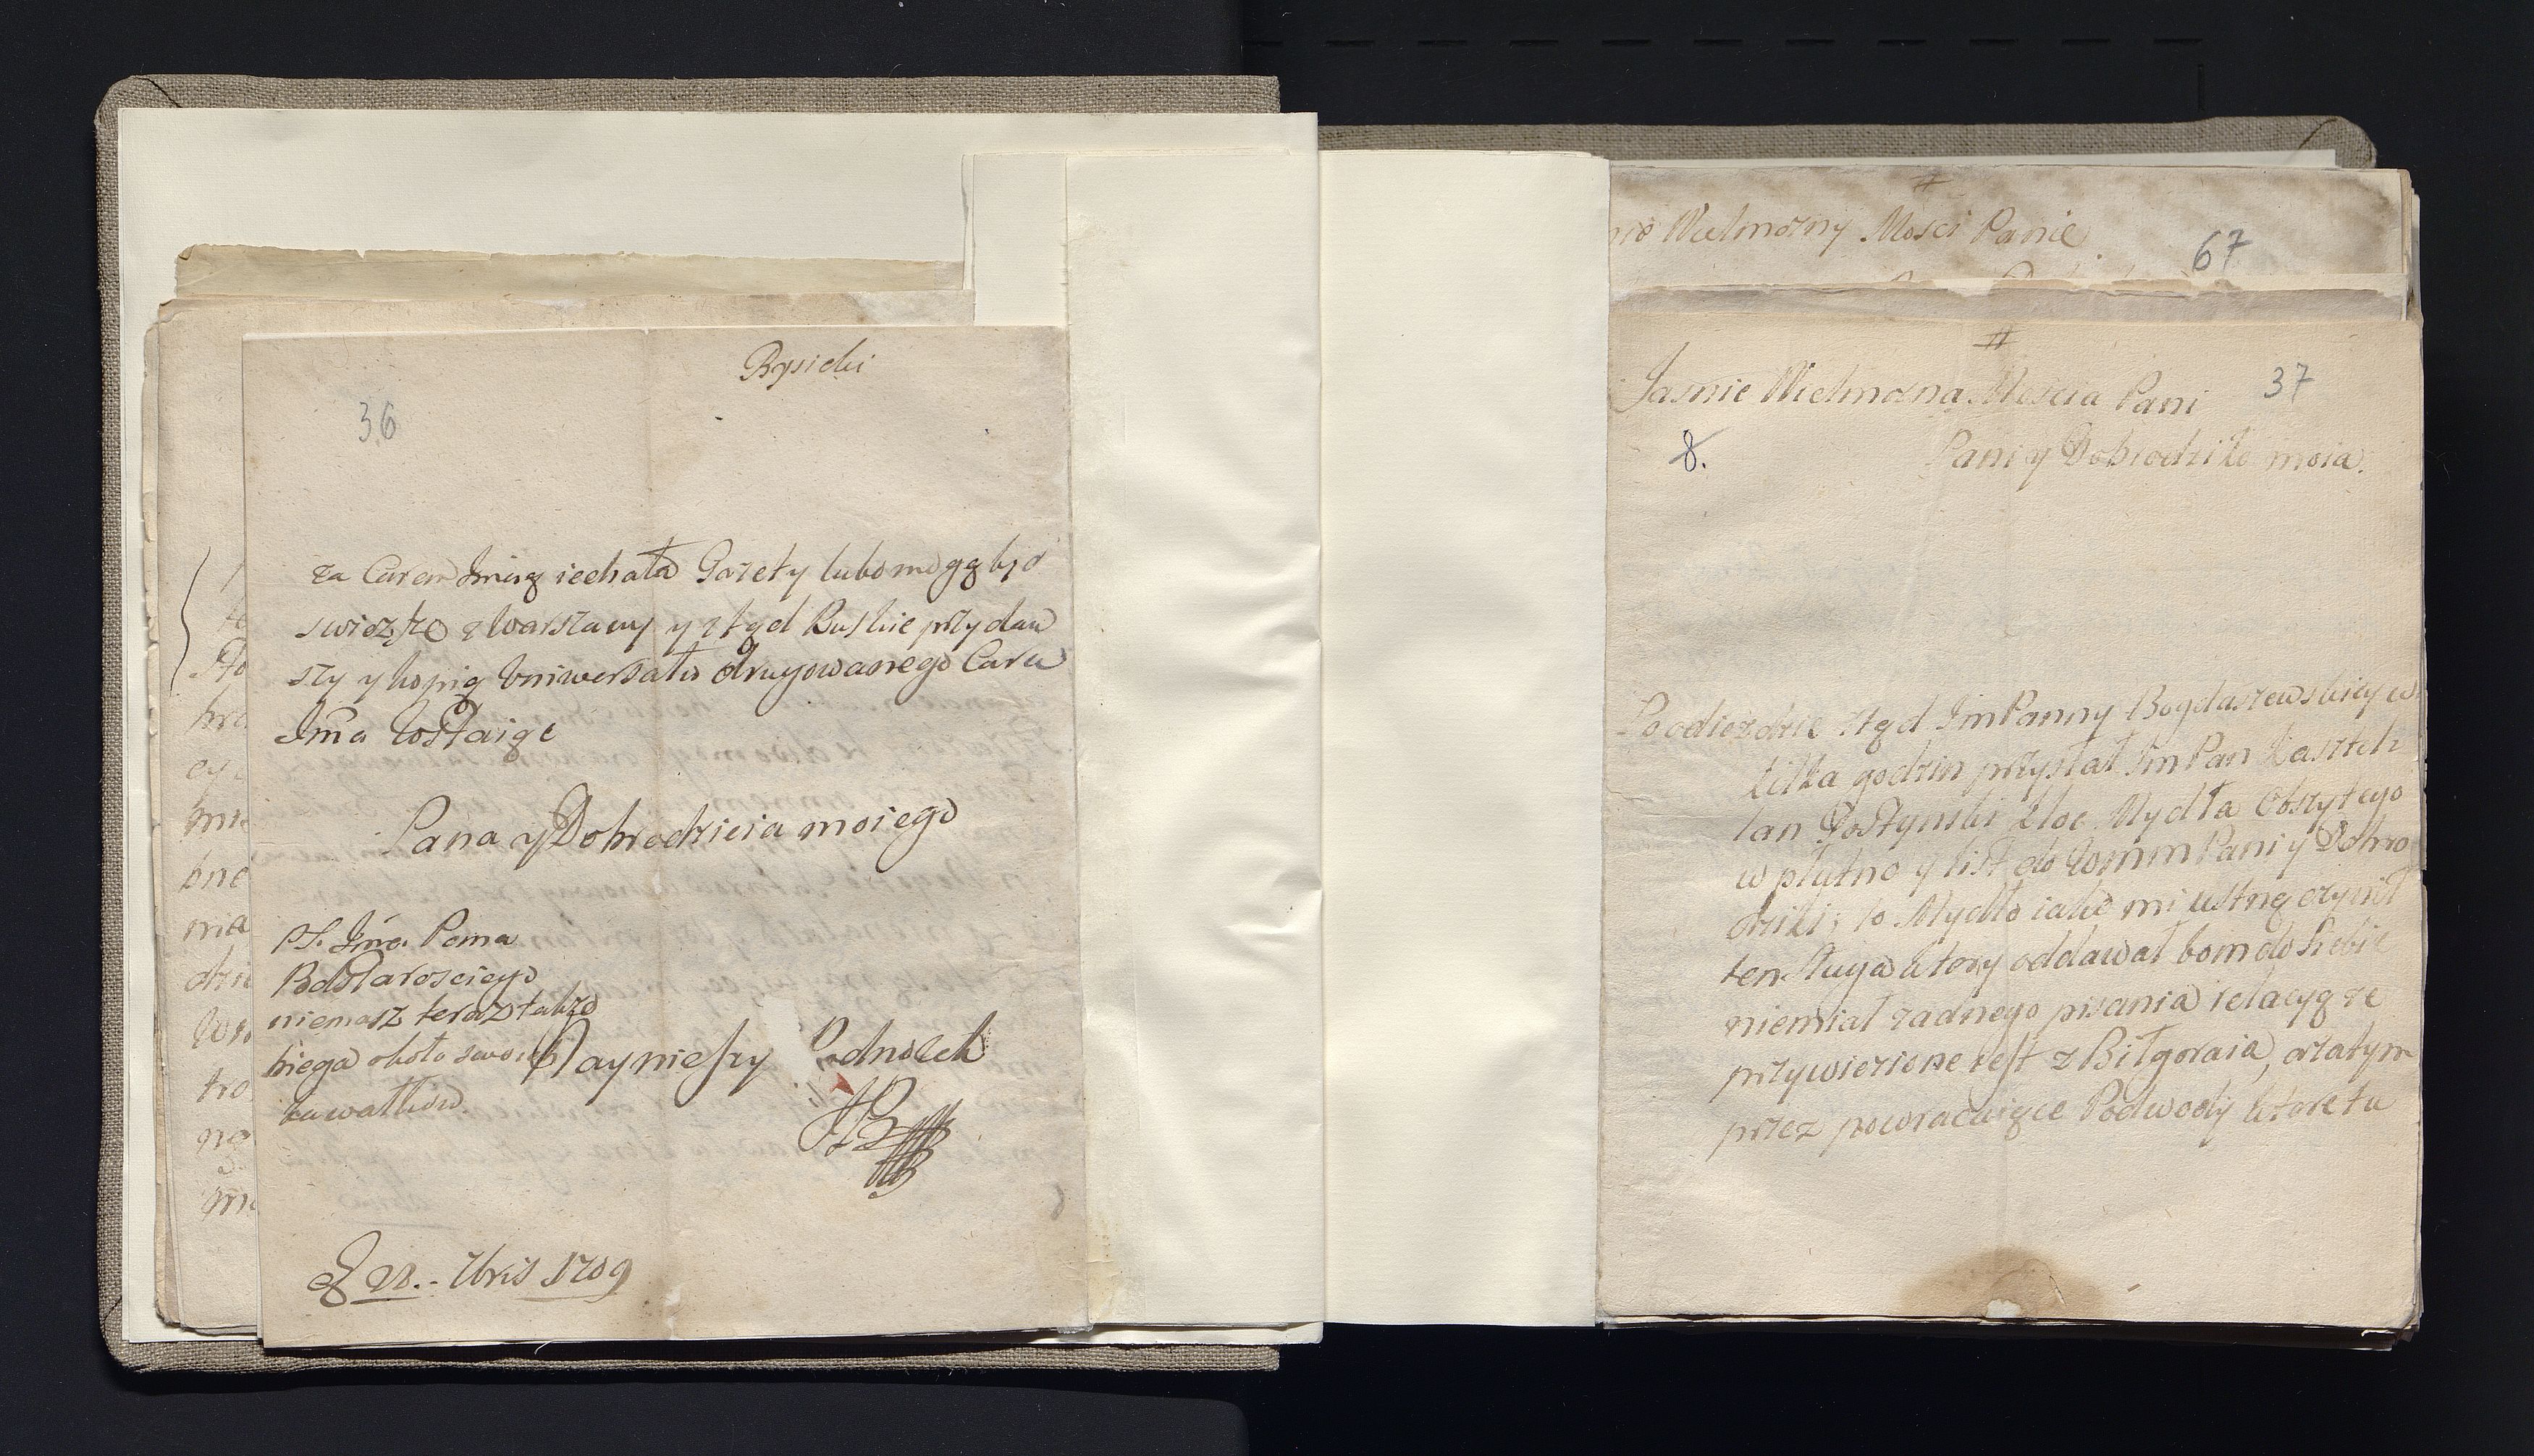 Rysicki
36
za Carem Imią iechała Gazety lubo mogą być
swieższe z Warszawy y ztąd Ruskie przydaw
szy y kopię Uniwersału drugowanego Cara
Imci zostaię
Pana y Dobrodzieia moiego
PS. Imci Pana
Podstarosciego
niemasz teraz także
biega około swoich
kawałków
Nayniższy Podnozek
28. 7bris 1709
nie Wielmozny Mosci Panie
67
Jasnie Wielmozna Moscia Pani
37
8.
Pani y Dobrodziko moia.
Po odiezdzie ztąd ImPanny Bogdaszewskiey w
kilka godzin przysłał ImPan Kasztel
lan Gostynski kloc Mydła obszytego
w płutno y list do WMM Pani y Dobro
dziki; to Mydło iako mi ustnę czynił
ten Sługa ktory oddawał bom do siebie
niemiał zadnego pisania relacyą ze
przywiezione iest z Biłgoraia, a zatym
przez powracaiące Podwody ktore tu